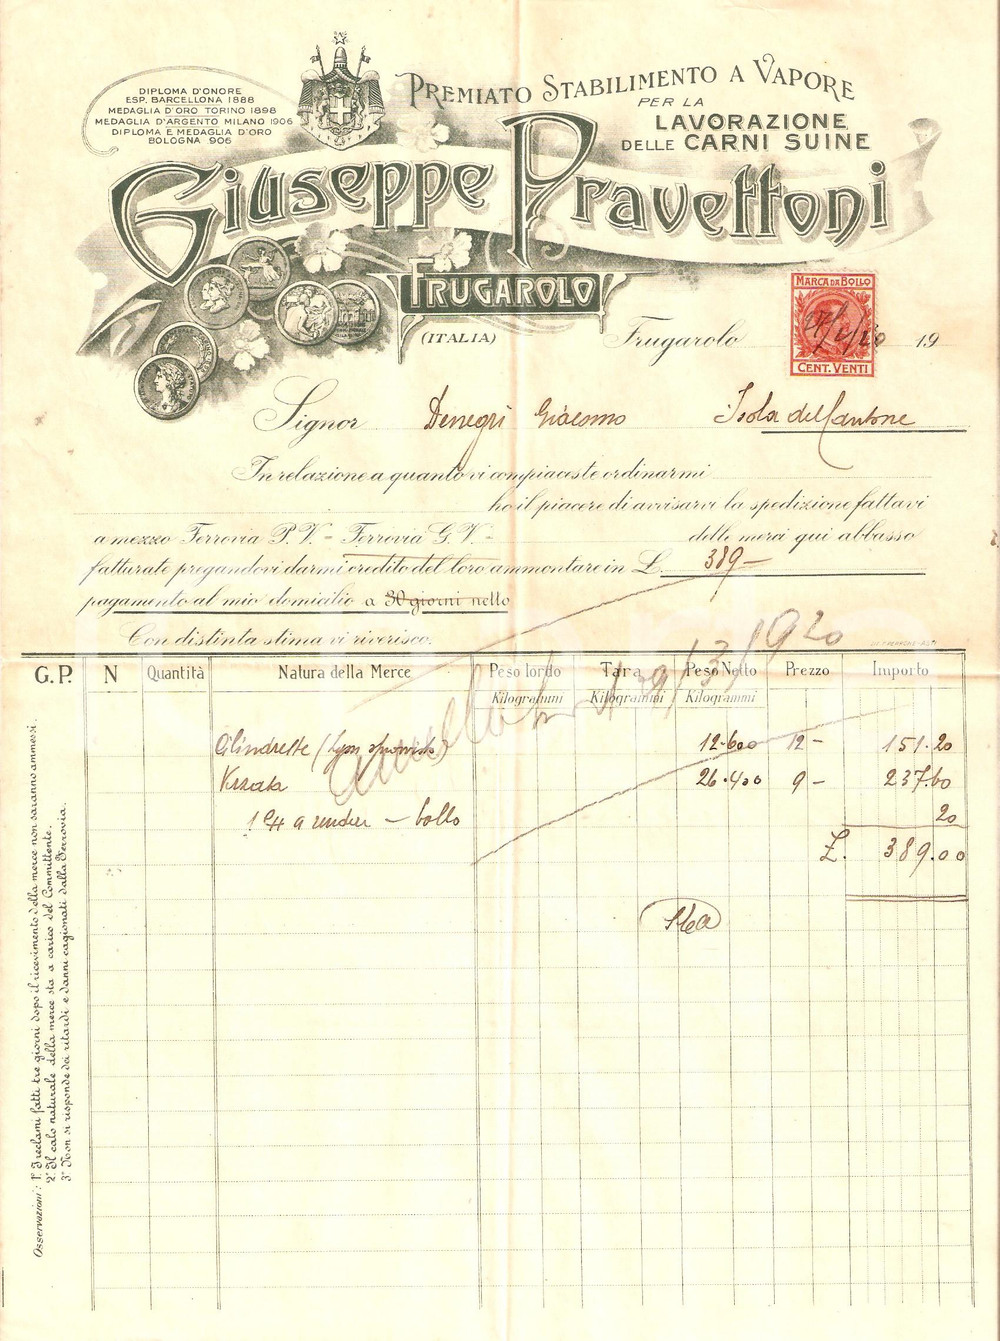 DIPLOMA D'ONORE
ESP. BARCELLONA 1888
MEDAGLIA D'ORO TORINO 1898
MEDAGLIA D'ARGENTO MILANO 1906
DIPLOMA E MEDAGLIA D'ORO
BOLOGNA 906
PREMIATO STABILIMENTO A VAPORE
PER LA
LAVORAZIONE
DELLE CARNI SUINE
Giuseppe Pravettoni
FRUGAROLO
(ITALIA)
MARCA DA BOLLO
CENT. VENTI
Frugarolo 19
Signor Denegri Giacomo Isola del Cantone
In relazione a quanto vi compiaceste ordinarmi
ho il piacere di avvisarvi la spedizione fattavi
a mezzo Ferrovia P. V. = Ferrovia G. V. = delle merci qui abbasso
fatturate pregandovi darmi credito del loro ammontare in L. 389 —
pagamento al mio domicilio a 30 giorni netto
Con distinta stima vi riverisco.
G. P. N Quantità Natura della Merce Peso lordo Tara Peso Netto Prezzo Importo
Kilogrammi Kilogrammi Kilogrammi
29/3/920
12.600 12 - 151.20
26.400 9 - 237.60
bollo 20
L. 389.00
Osservazioni: 1° I reclami fatti tre giorni dopo il ricevimento della merce non saranno ammessi.
2° Il calo naturale della merce sta a carico del Committente.
3° Non si risponde dei ritardi e danni cagionati dalla Ferrovia.